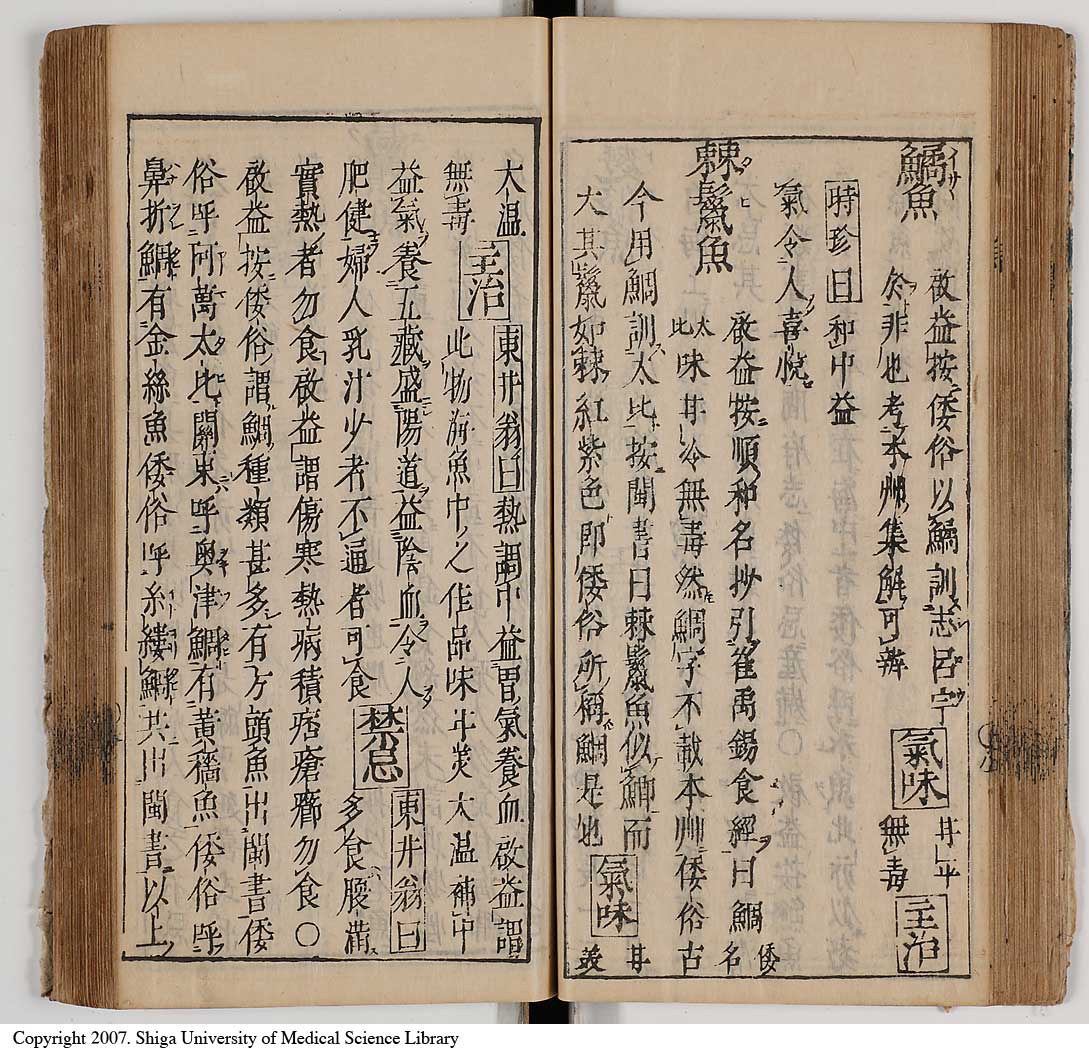 鱎魚 啟益按倭俗以鱎訓志呂宇 氣味 甘平 主治
於非也考本艸集解可辨 無毒
時珍曰和中益
氣令人喜悅
棘鬣魚 啟益按順和名抄引崔禹錫食經曰鯛 倭名
太比 味甘冷無毒然鯛字不載本艸倭俗古
今用鯛訓太比按閩書曰棘鬣魚似鯽而
大其鬣如棘紅紫色即倭俗所稱鯛是也 氣味 甘美
大温 東井翁曰熱調中益胃氣養血啟益謂
無毒 主治 此物海魚中之佳品味甘美大温補中
益氣養五藏盛陽道益陰血令人
肥健婦人乳汁少者不通者可食 禁忌 東井翁曰
多食腹満
實熱者勿食啟益謂傷寒熱病積痞瘡癬勿食〇
啟益按倭俗謂鯛種類甚多有方頭魚出閩書倭
俗呼阿萬太比關東呼奧津鯛有黄穡魚倭俗呼
鼻折鯛有金絲魚倭俗呼糸縷鯛共出閩書以上
Copyright 2007. Shiga University of Medical Science Library